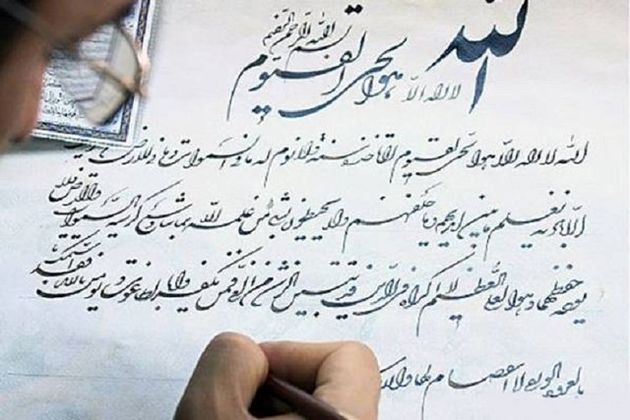 بسم الله الرحمن الرحیم
الله لا اله الا هو الحی القیوم
الله لا اله الا هو الحی القیوم لا تاخذه سنة ولا نوم له ما فی السموات وما فی الارض
الا باذنه یعلم ما بین ایدیهم وما خلفهم ولا یحیطون بشیء من علمه الا بما شاء وسع کرسیه السموات والارض ولا
یؤده حفظهما وهو العلی العظیم لا اکراه فی الدین قد تبین الرشد من الغی فمن یکفر بالطاغوت ویؤمن بالله فقد استمسک
بالعروة الوثقی لا انفصام لها والله